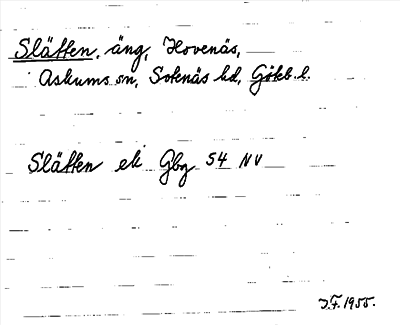 Slätten, äng, Hovenäs,
Askums sn, Sotenäs hd, Göteb. l.
Slätten ek Gbg 54 NV
J.F. 1955.